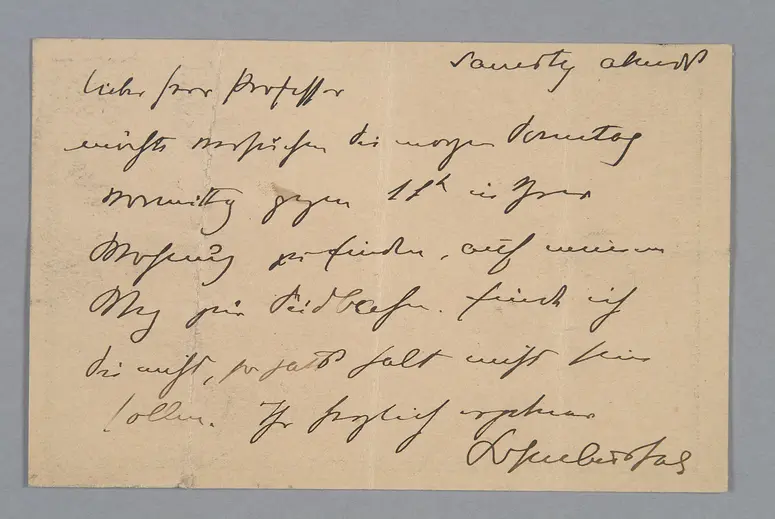 Samstag abends
Lieber Herr Professor
möchte versuchen Sie morgen Sonntag
Vormittag gegen 11h in Ihrer
Wohnung zu finden, auf meinem
Weg zur Südbahn. Finde ich
Sie nicht, so hats halt nicht sein
sollen. Ihr herzlich ergebener
Hofmannsthal